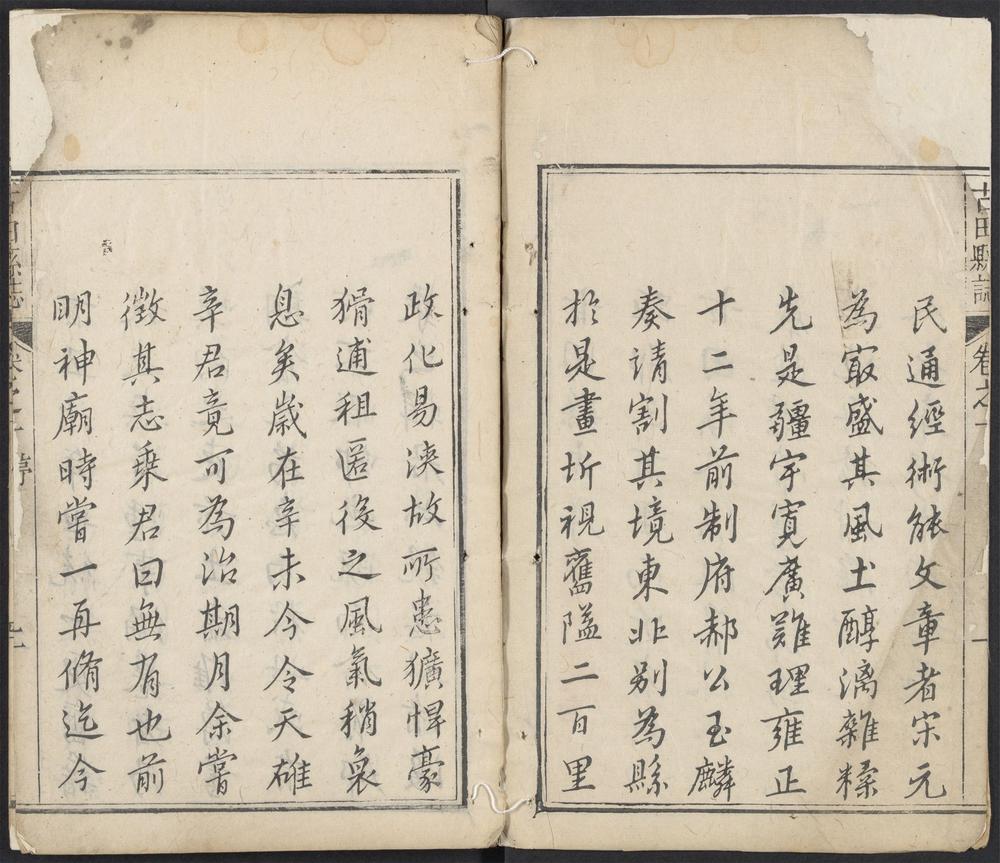 古田縣誌 卷之一 一
民通經術能文章者宋元
為㝡盛其風土醇漓雜糅
先是疆宇寬廣難理雍正
十二年前制府郝公玉麟
奏請割其境東北別為縣
於是畫圻視舊隘二百里
政化易浹故所患獷悍豪
猾逋租匿役之風氣稍衰
息矣歲在辛未今令天雄
辛君竟可為治期月余嘗
徵其志乗君曰無有也前
明神廟時嘗一再脩迄今
田縣誌 卷之一 序